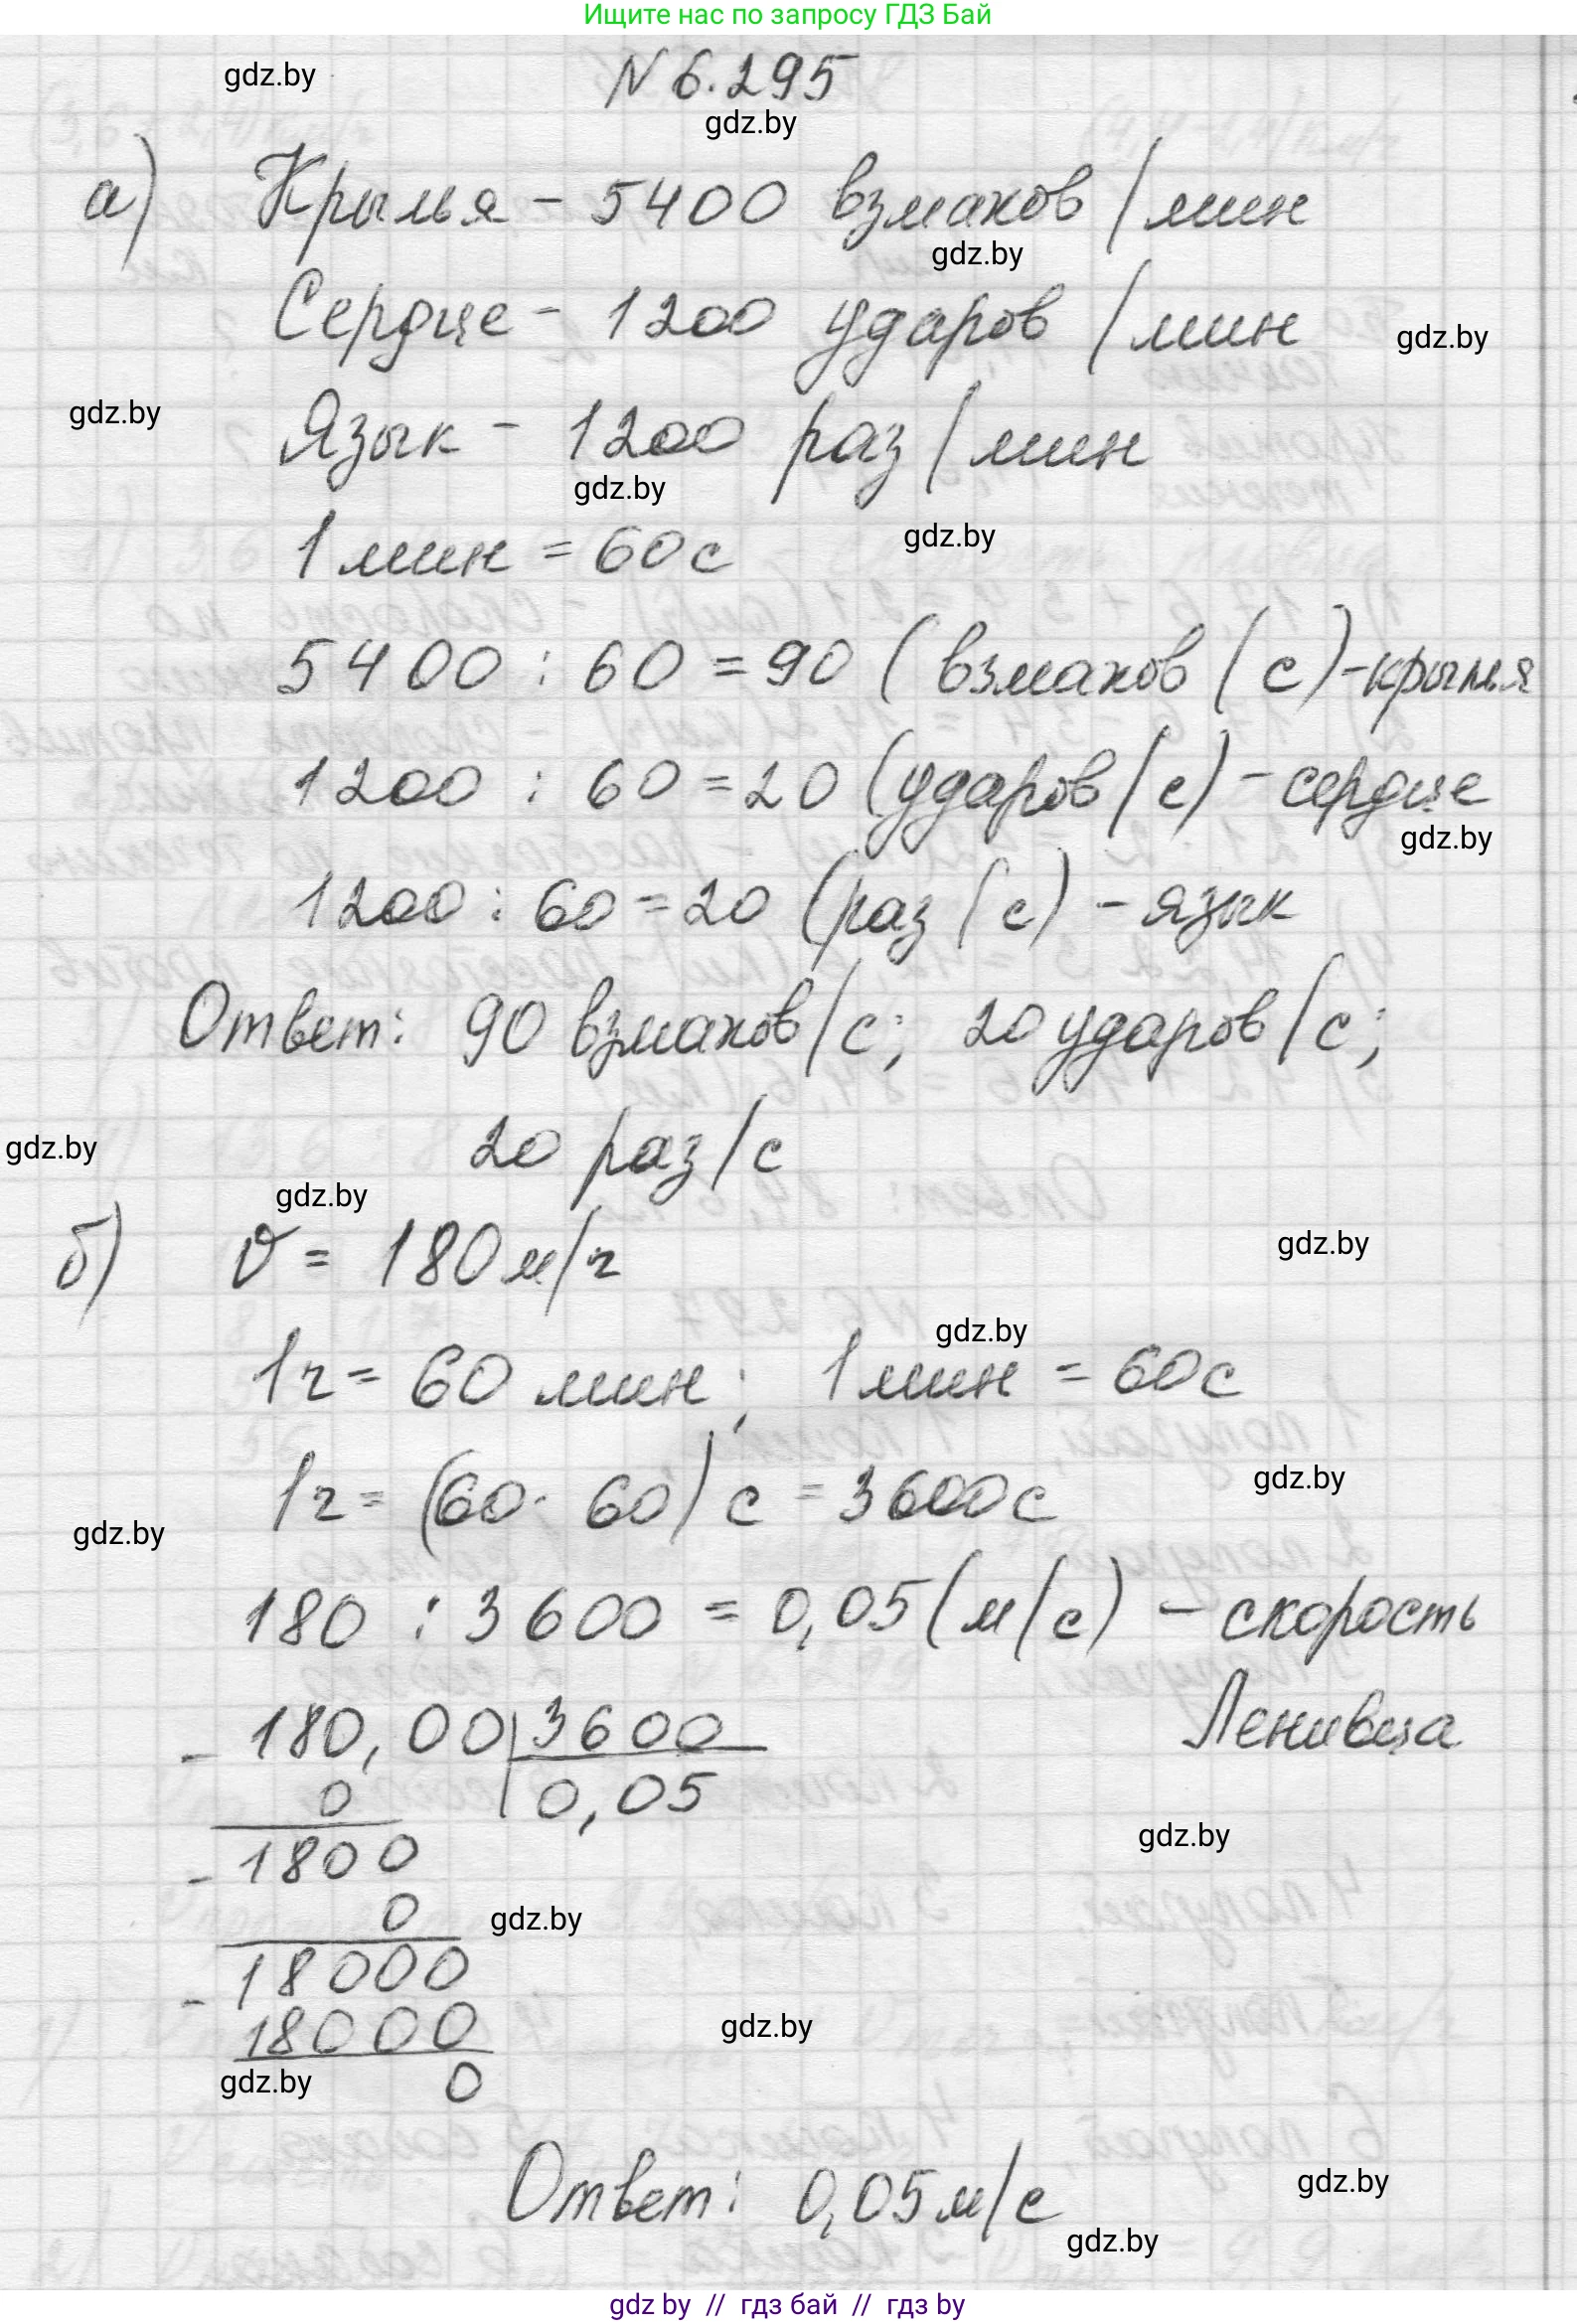 Ищите нас по запросу ГДЗ Бай
gdz.by
N 6.295
gdz.by
а) Крылья - 5400 взмахов / мин
gdz.by
Сердце - 1200 ударов / мин
gdz.by
gdz.by
Язык - 1200 раз / мин
gdz.by
gdz.by
1 мин = 60 с
5400 : 60 = 90 ( взмахов / с ) - крылья
1200 : 60 = 20 (ударов / с) - сердце
gdz.by
1200 : 60 = 20 (раз / с) - язык
Ответ: 90 взмахов/с; 20 ударов/с;
20 раз/с
gdz.by
gdz.by
б) v = 180 м/ч
gdz.by
gdz.by
1ч = 60 мин; 1 мин = 60с
1ч = (60 · 60) с = 3600с
gdz.by
gdz.by
180 : 3600 = 0,05 (м/с) - скорость
Ленивца
- 180,00 | 3600
0 | 0,05
gdz.by
- 1800
0
gdz.by
- 18000
18000
gdz.by
0
gdz.by
Ответ: 0,05 м/с
gdz.by
gdz.by
gdz by // гдз бай // гдз by